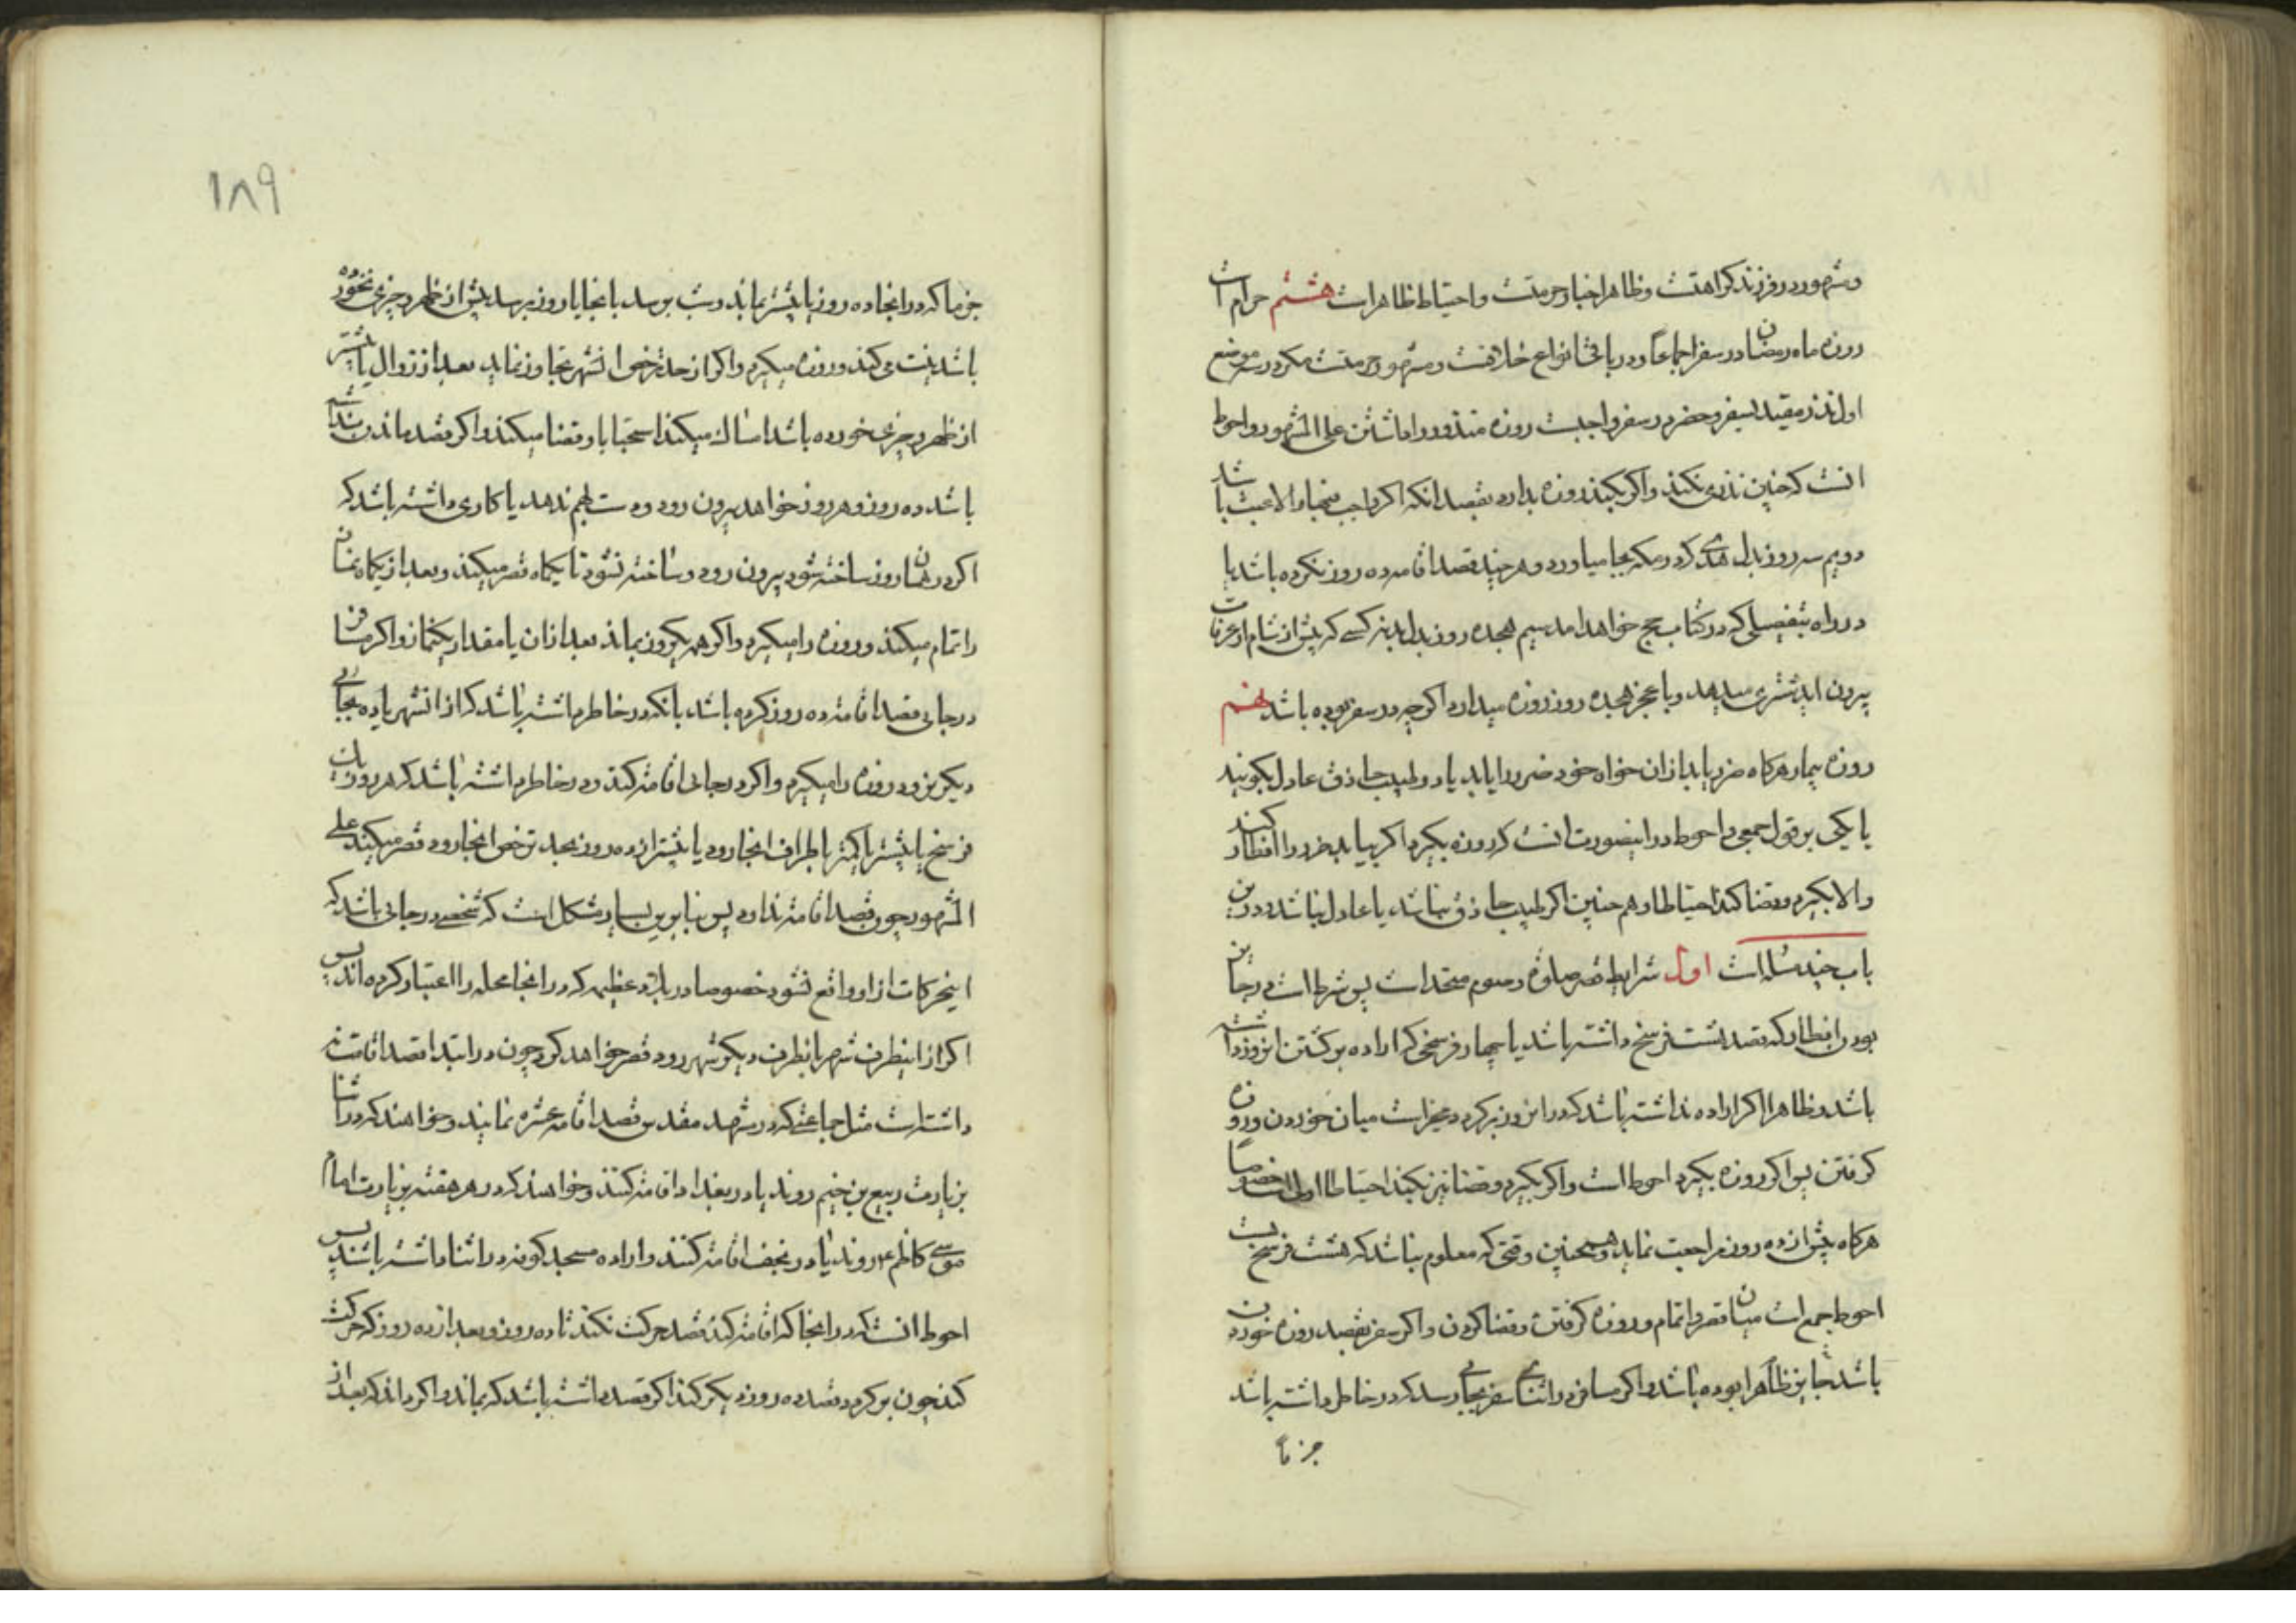 ومشهور در فرزند کراهتست وظاهر اخبار حرمتست واحتیاط ظاهر است هشتم حرام است
روزه ماه رمضان در سفر اجماعاً ودر باقی انواع خلافست ومشهور حرمتست مکر در سه موضع
اول نذر مقید بسفر وحضر در سفر واجبست روزه منذور را داشتن علی المشهور واحوط
انست که چنین نذری نکند واکر بکند روزه بدارد بقصد انکه اکر واجب نباشد والا عبث باشد
دویم سه روز بدل هدی که در مکه بجا میاورد وهر چند قصد اقامه ده روز نکرده باشد یا
در راه بتفصیلی که در کتاب حج خواهد امد سیم هجده روز بدل بدنه کسی که پیش از شام از عرفات
بیرون اید شتری میدهد وبا عجز هجده روز روزه میدارد اکرچه در سفر بوده باشد نهم
روزه بیمار هرکاه ضرر یابد از ان خواه خود ضرر را یابد یا دو طبیب حاذق عادل بکویند
یا یکی بر قول جمعی واحوط در اینصورت انست که روزه بکیرد اکر بیابد ضرر را افطار کند
والا بکیرد وقضا کند احتیاطا وهم چنین اکر طبیب حاذق نباشد یا عادل نباشد ودرین
باب چند مسله است اول شرایط قصر صلوة وصوم متحد است پس شرط است در جایز
بودن افطار که قصد هشت فرسخ داشته باشد یا چهار فرسخی که اراده برکشتن انروز داشته
باشد وظاهرا اکر اراده نداشته باشد که در انروز برکردد مخیر است میان خوردن وروزه
کرفتن پس اکر روزه بکیرد احوط است واکر بکیرد وقضا نیز بکند احتیاطا اولی است خصوصاً
هرکاه پیش از ده روز مراجعت نماید وهمچنین وقتی که معلوم نباشد که هشت فرسخ است
احوط جمع است میان قصر واتمام وروزه کرفتن وقضا کردن واکر سفر بقصد روزه خوردن
باشد جایز ظاهرا بوده باشد واکر مسافر در اثنای سفر بجائی رسد که در خاطر داشته باشد
جزماً
۱۸۹
جزما که در انجا ده روز یا بیشتر بماند وشب برسد بانجا یا روز برسد پیش از ظهر وچیزی نخورده
باشد نیت می کند وروزه میکیرد واکر از حد ترخص انشهر تجاوز نماید بعد از زوال یا پیشتر
از ظهر وچیزی خورده باشد امساک میکند استحبابا وقضا میکند واکر قصد ماندن نداشته
باشد ده روز وهر روز خواهد بیرون رود ودست بهم ندهد یا کاری داشته باشد که
اکر در همان روز ساخته شود بیرون رود وساخته نشود تا یکماه قصر میکند وبعد از یکماه نماز
را تمام میکند وروزه را میکیرد واکر همه یکروز بماند بعد از ان یا مقدار یکنماز واکر مسافر
در جایی قصد اقامه ده روز کرده باشد بانکه در خاطر داشته باشد که از انشهر یا ده بجائی
دیکر نرود روزه را میکیرد واکر در جائی اقامه کند ودر خاطر داشته باشد که هر روز یک
فرسخ یا بیشتر یا کمتر باطراف انجا رود یا بیشتر از ده روز بحد ترخص انجا رود قصر میکند علی
المشهور چون قصد اقامه ندارد پس بنا برین بسیار مشکل است که شخصی در جائی باشد که
اینحرکات ازاو واقع نشود خصوصا در بلاد عظیمه که در انجا محله را اعتبار کرده اند پس
اکر از اینطرف شهر بانطرف دیکر شهر رود قصر خواهد کرد چون در ابتدا قصد اقامت نه
داشته است مثل جماعتی که در مشهد مقدس قصد اقامه عشره نمایند وخواهند که در اثنا
بزیارت ربیع بن خثیم روند یا در بغداد اقامه کنند وخواهند که در هر هفته بزیارت امام
موسی کاظم ع روند یا در نجف اقامه کنند واراده مسجد کوفه در اثنا داشته باشند پس
احوط انست که در انجا که اقامه کند قصد حرکت نکند تا ده روز وبعد از ده روز که حرکت
کند چون برکردد قصد ده روز دیکر کند اکر قصد داشته باشد که بماند واکر داند که بعد از